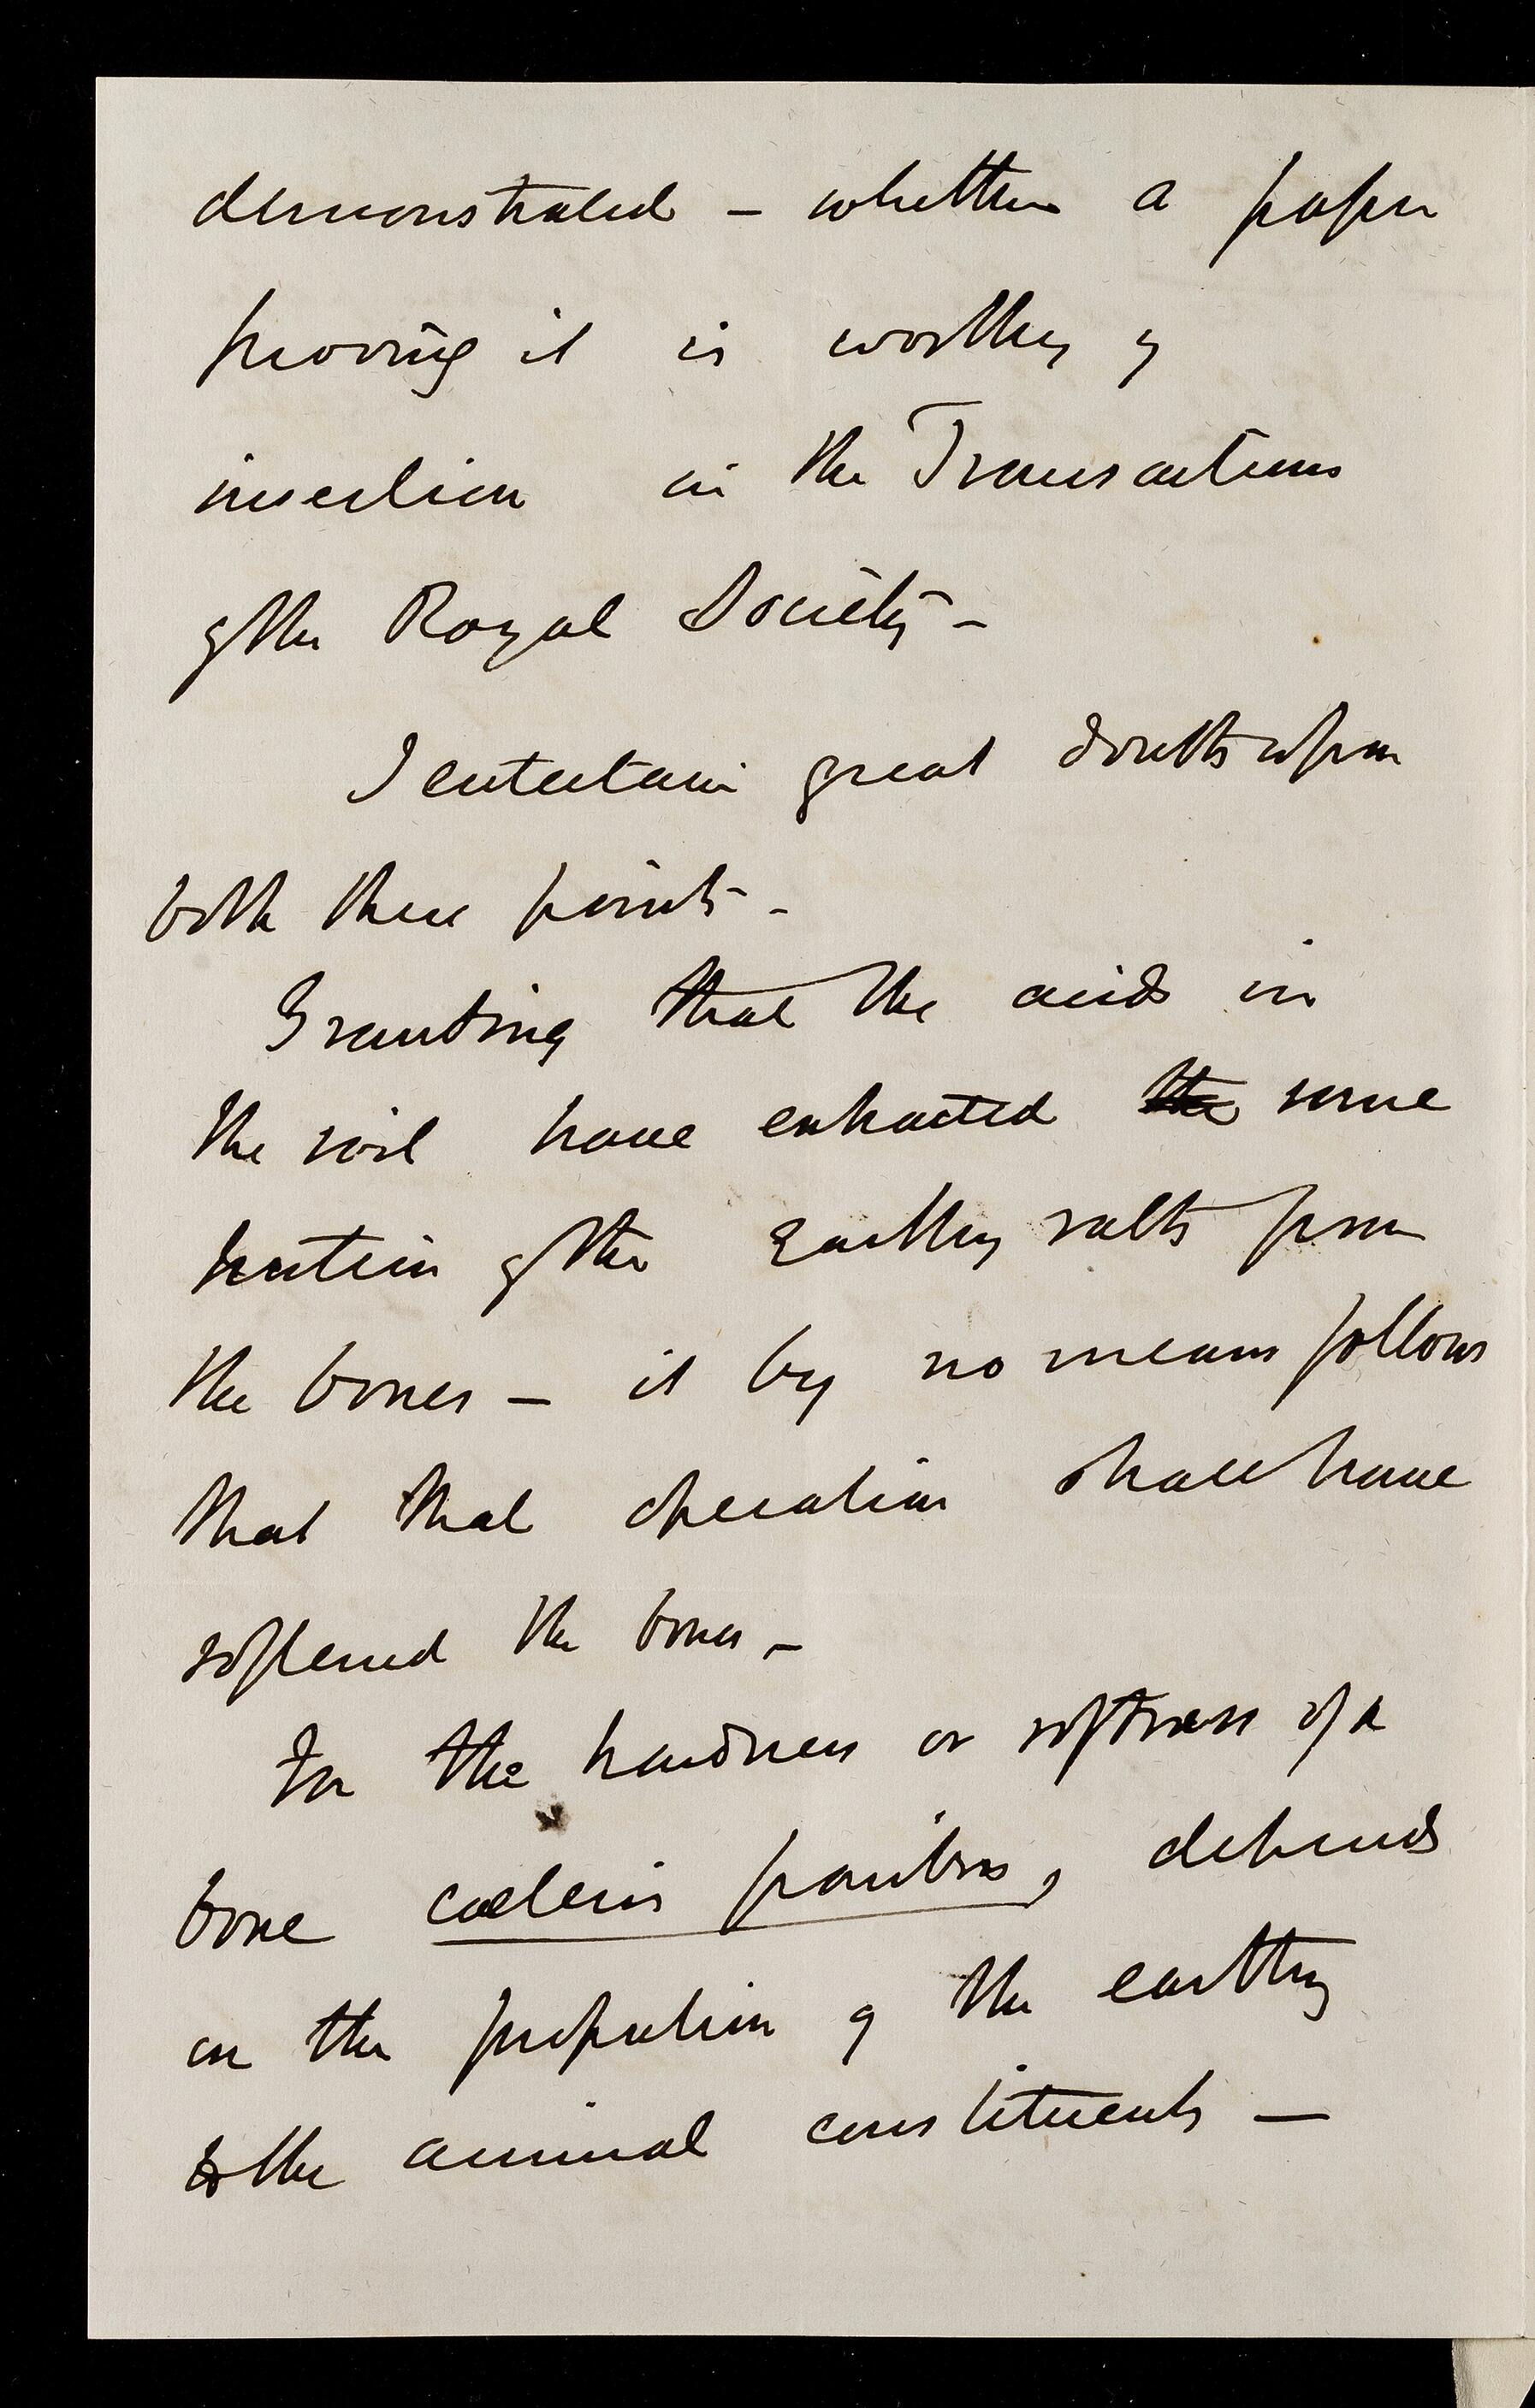 demonstrated – whether a paper
proving it is worthy of
insertion in the Transactions
of the Royal Society –
I entertain great doubts upon
both these points –
Granting that the acids in
the soil have extracted the some
portion of the Earthy salts from
the bones – it by no means follows
that that operation shall have
softened the bones –
For the hardness or softness of a
bone cæteris paribus, depends
on the proportion of the earthy
to the animal constituents –